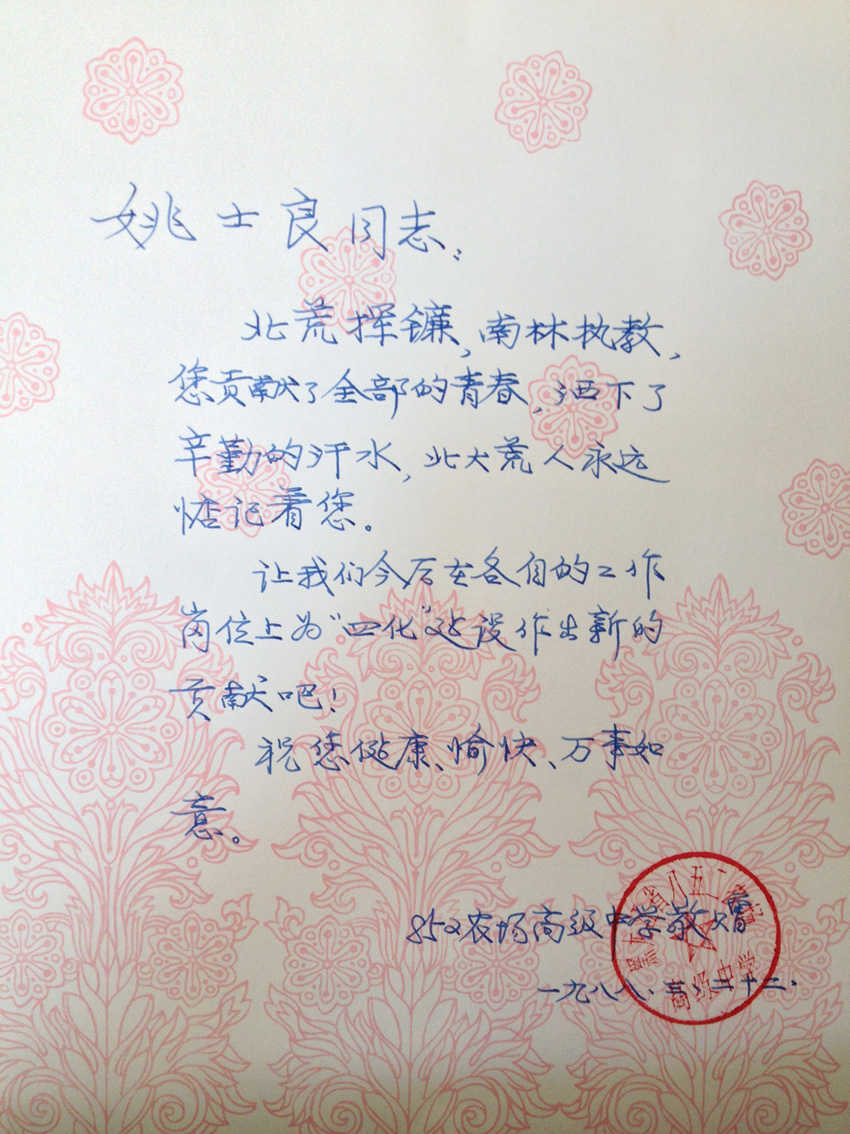 姚士良同志：
北荒挥镰，南林执教，
您贡献了全部的青春，洒下了
辛勤的汗水，北大荒人永远
惦记着您。
让我们今后在各自的工作
岗位上为“四化”建设作出新的
贡献吧！
祝您健康、愉快、万事如
意。
852农场高级中学敬赠
一九八八.二十二.
黑龙江省八五二农场
高级中学